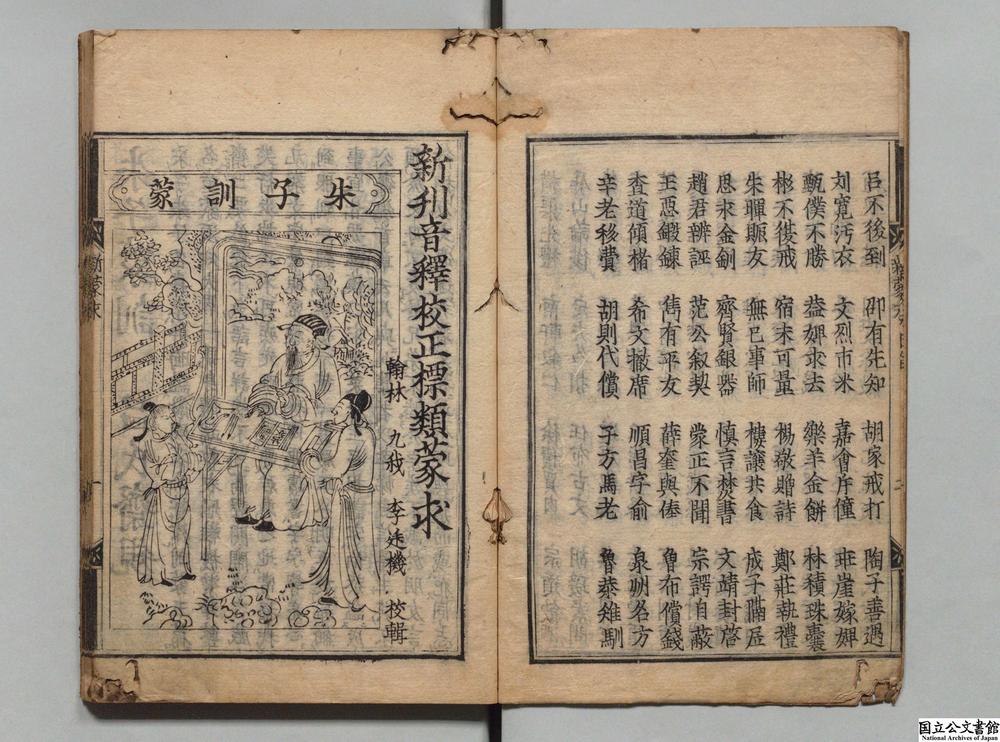 呂不後到 邵有先知 胡家戒打 陶子善遇
刘寬汚衣 文烈市米 嘉會斥僮 乖崖嫁婢
甑僕不勝 益婢求去 樂羊金餅 林積珠囊
彬不 戒 宿未可量 楊敬贈詩 鄭莊執禮
朱暉賑友 無已事師 樓護共食 成子隔居
恩求金釧 齊賢銀器 慎言焚書 文靖封啓
趙君辨誣 范公叙契 蒙正不聞 宗諤自蔽
王惡鍛鍊 雋有平女 薛奎與俸 魯布償錢
查道傾楮 希文撤席 順昌字俞 泉明名方
辛老移賞 胡則代償 子方馬老 魯恭雉馴
二
新刊音釋校正標類蒙求
翰林 九我 李廷機 校輯
朱子訓蒙
国立公文書館
National Archives of Japan